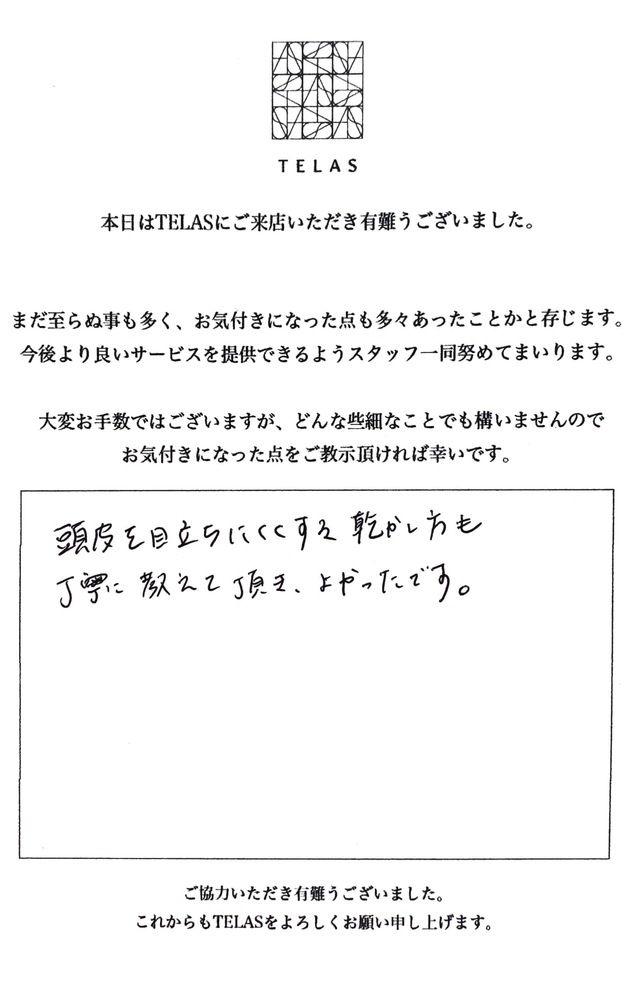 TELAS
本日はTELASにご来店いただき有難うございました。
まだ至らぬ事も多く、お気付きになった点も多々あったことかと存じます。
今後より良いサービスを提供できるようスタッフ一同努めてまいります。
大変お手数ではございますが、どんな些細なことでも構いませんので
お気付きになった点をご教示頂ければ幸いです。
頭皮を目立ちにくくする乾かし方も
丁寧に教えて頂き、よかったです。
ご協力いただき有難うございました。
これからもTELASをよろしくお願い申し上げます。